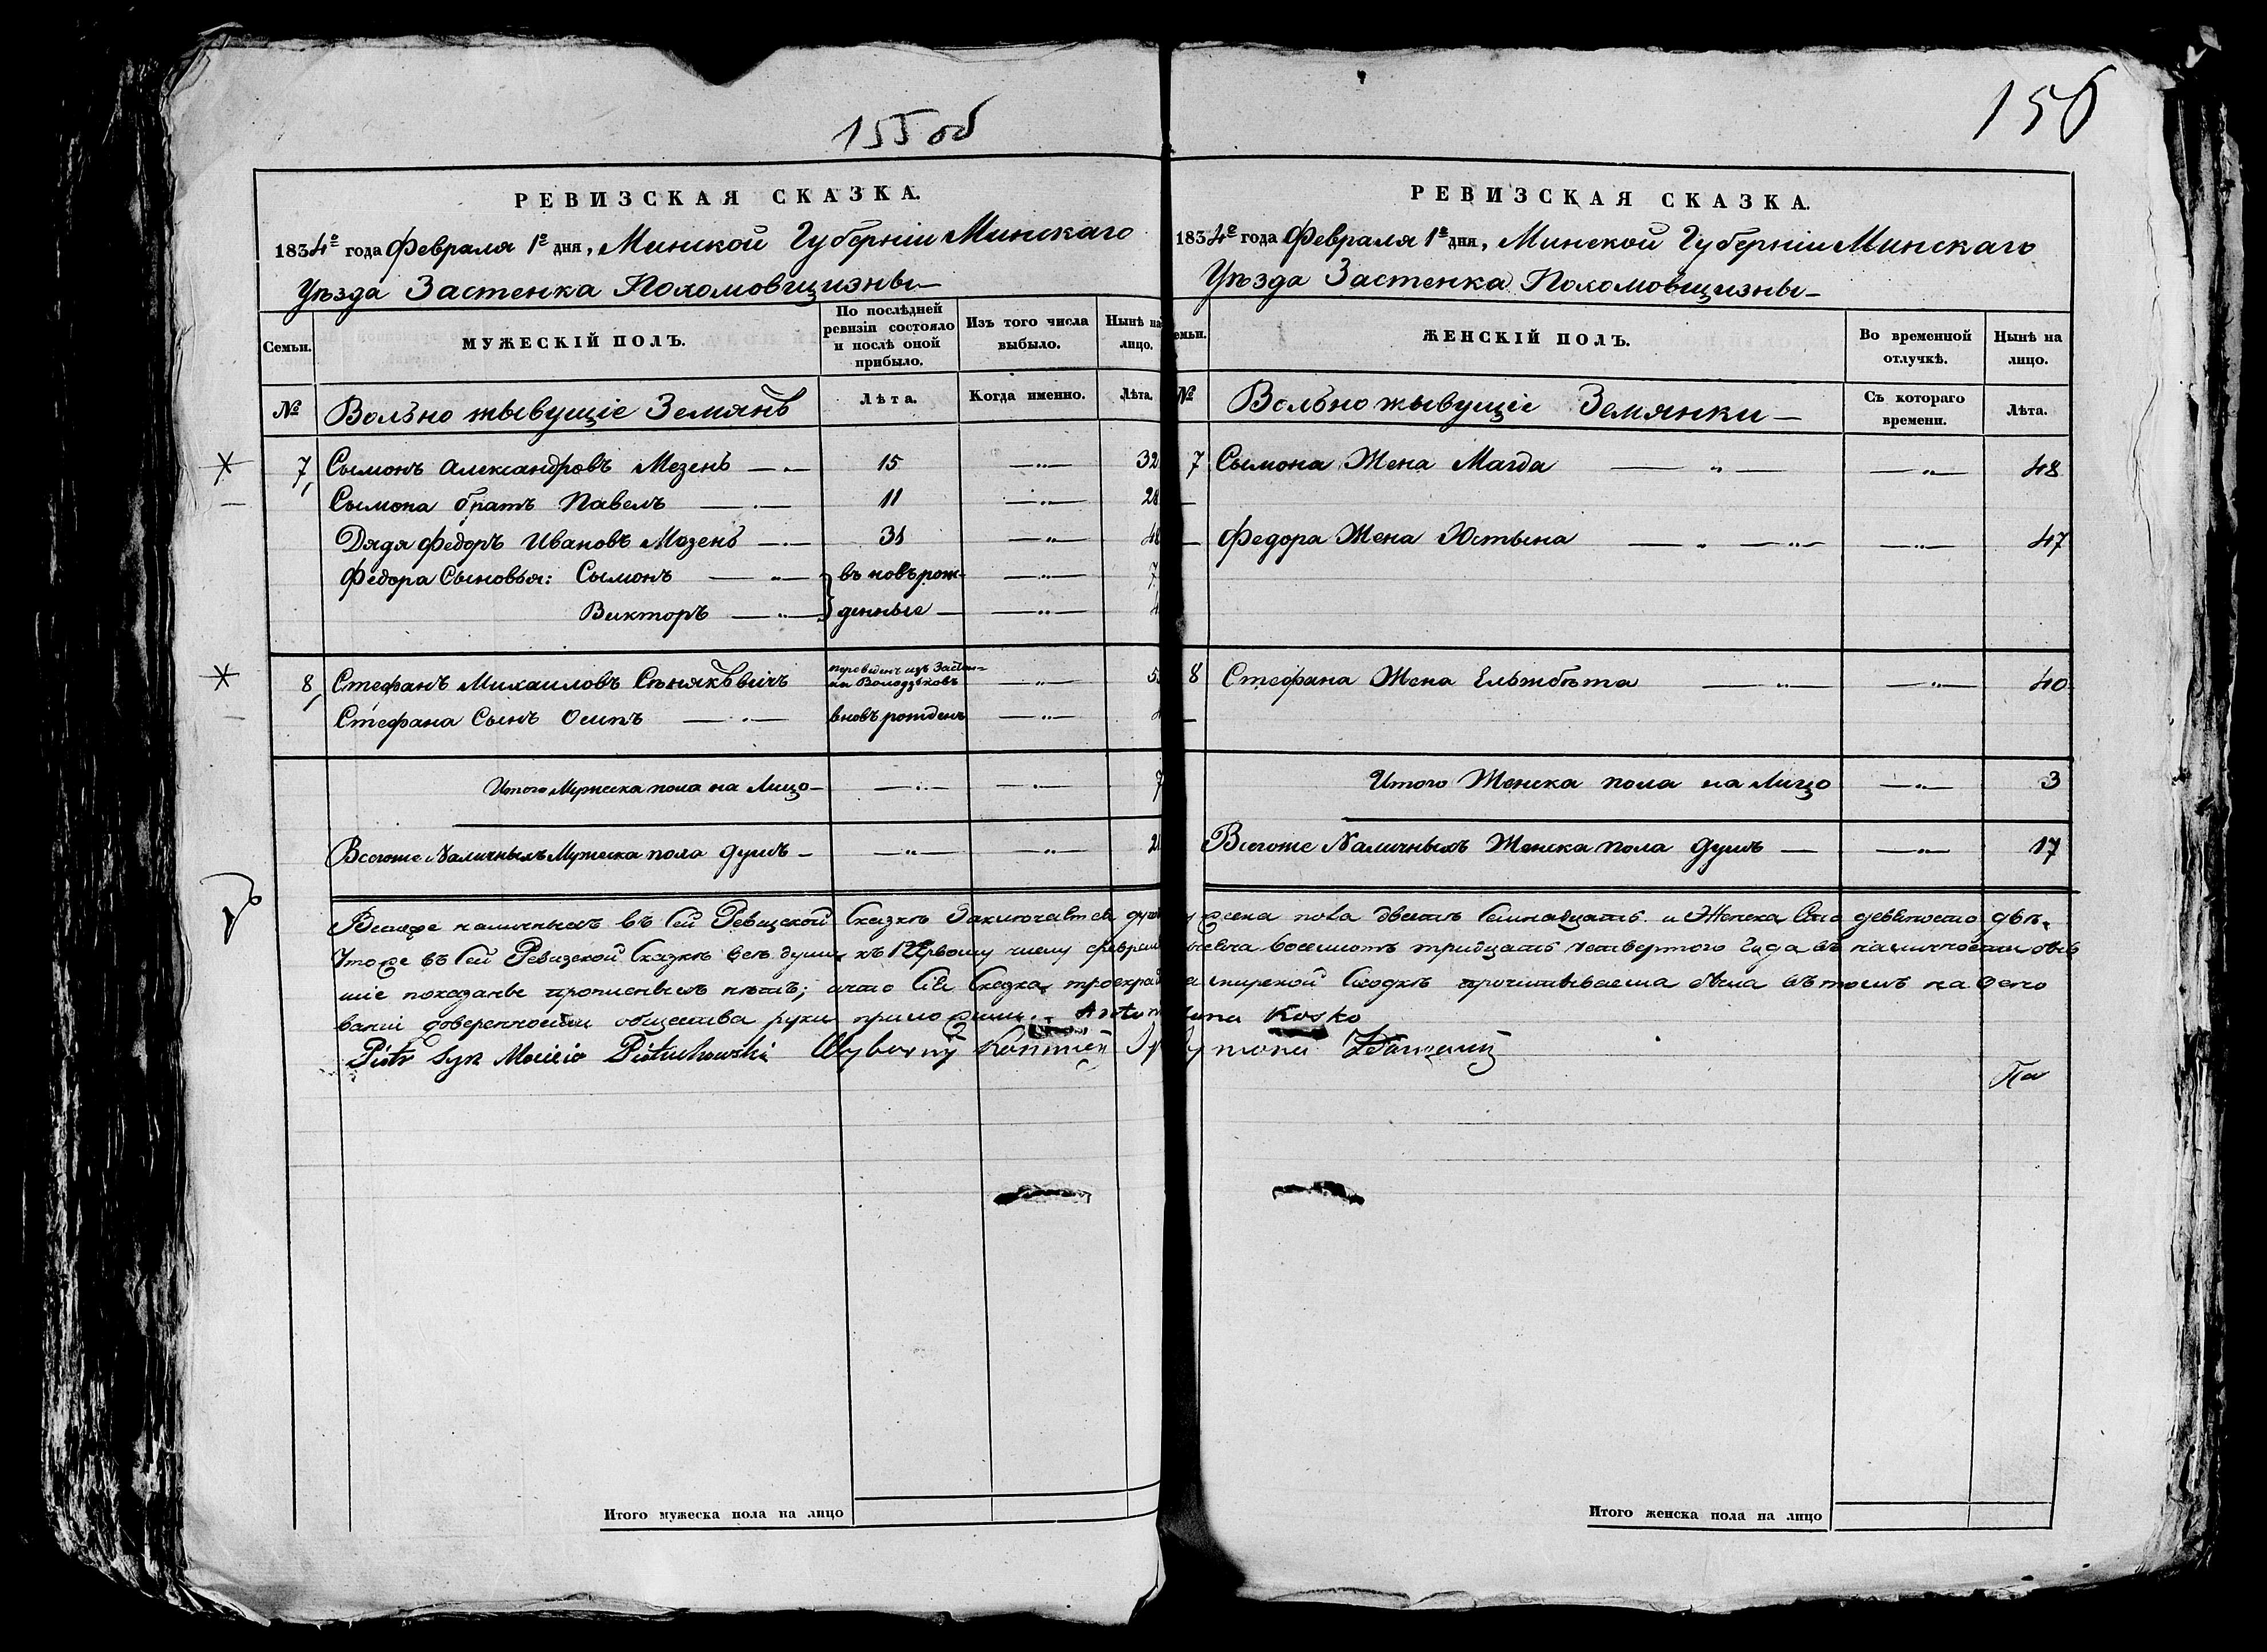 155 об
РЕВИЗСКАЯ СКАЗКА.
1834го года Февраля 1го дня, Минской Губерніи Минскаго
Уѣзда Застенка Похомовщизны
Семьи.
МУЖЕСКІЙ ПОЛЪ.
По послѣдней ревизіи состояло и послѣ оной прибыло.
Изъ того числа выбыло.
Нынѣ на лицо.
№
Вольно жывущіе Земянѣ
Лѣта.
Когда именно.
Лѣта.
7 Сымонъ Александровъ Мезенъ 15 32
Сымона братъ Павелъ 11 28
Дядя Федоръ Ивановъ Мозенъ 31 48
Федора Сыновья: Сымонъ въ новъ рож- 7
Викторъ денные
8 Стефанъ Михаиловъ переведенъ изъ Застен-
ка
Стефана Сынъ Осипъ вновъ рожденъ
Итого Мужеска пола на Лицо 7
Всегоже Наличныхъ Мужеска пола душъ
156
РЕВИЗСКАЯ СКАЗКА.
1834го года Февраля 1го дня, Минской Губерніи Минскаго
Уѣзда Застенка Похомовщизны
ЖЕНСКІЙ ПОЛЪ.
Во временной отлучкѣ.
Нынѣ на лицо.
№
Вольно жывущіе Земянки
Съ котораго времени.
Лѣта.
7 Сымона Жена Магда 48
Федора Жена Юстына 47
8 Стефана Жена Ельжбѣта 40
Итого Женска пола на Лицо 3
Всегоже Наличныхъ Женска пола душъ 17
Всегоже наличныхъ въ сей Ревизской Сказкѣ Заключается душъ пола двестѣ семнадцать и Женска Сто девяносто двѣ.
Чтоже въ сей Ревизской Сказкѣ всѣ души къ 1 Первому числу февраля восемсотъ тридцать четвертого года въ наличности
шіе показаны прописныхъ нѣтъ; и что Сія Сказка мирской Сходкѣ прочитываема была въ томъ на осно
ваніи доверенности общества руки приложили. Kosko
Piotr Syn Piotuchowski Wyborny
На
Итого мужеска пола на лицо
Итого женска пола на лицо